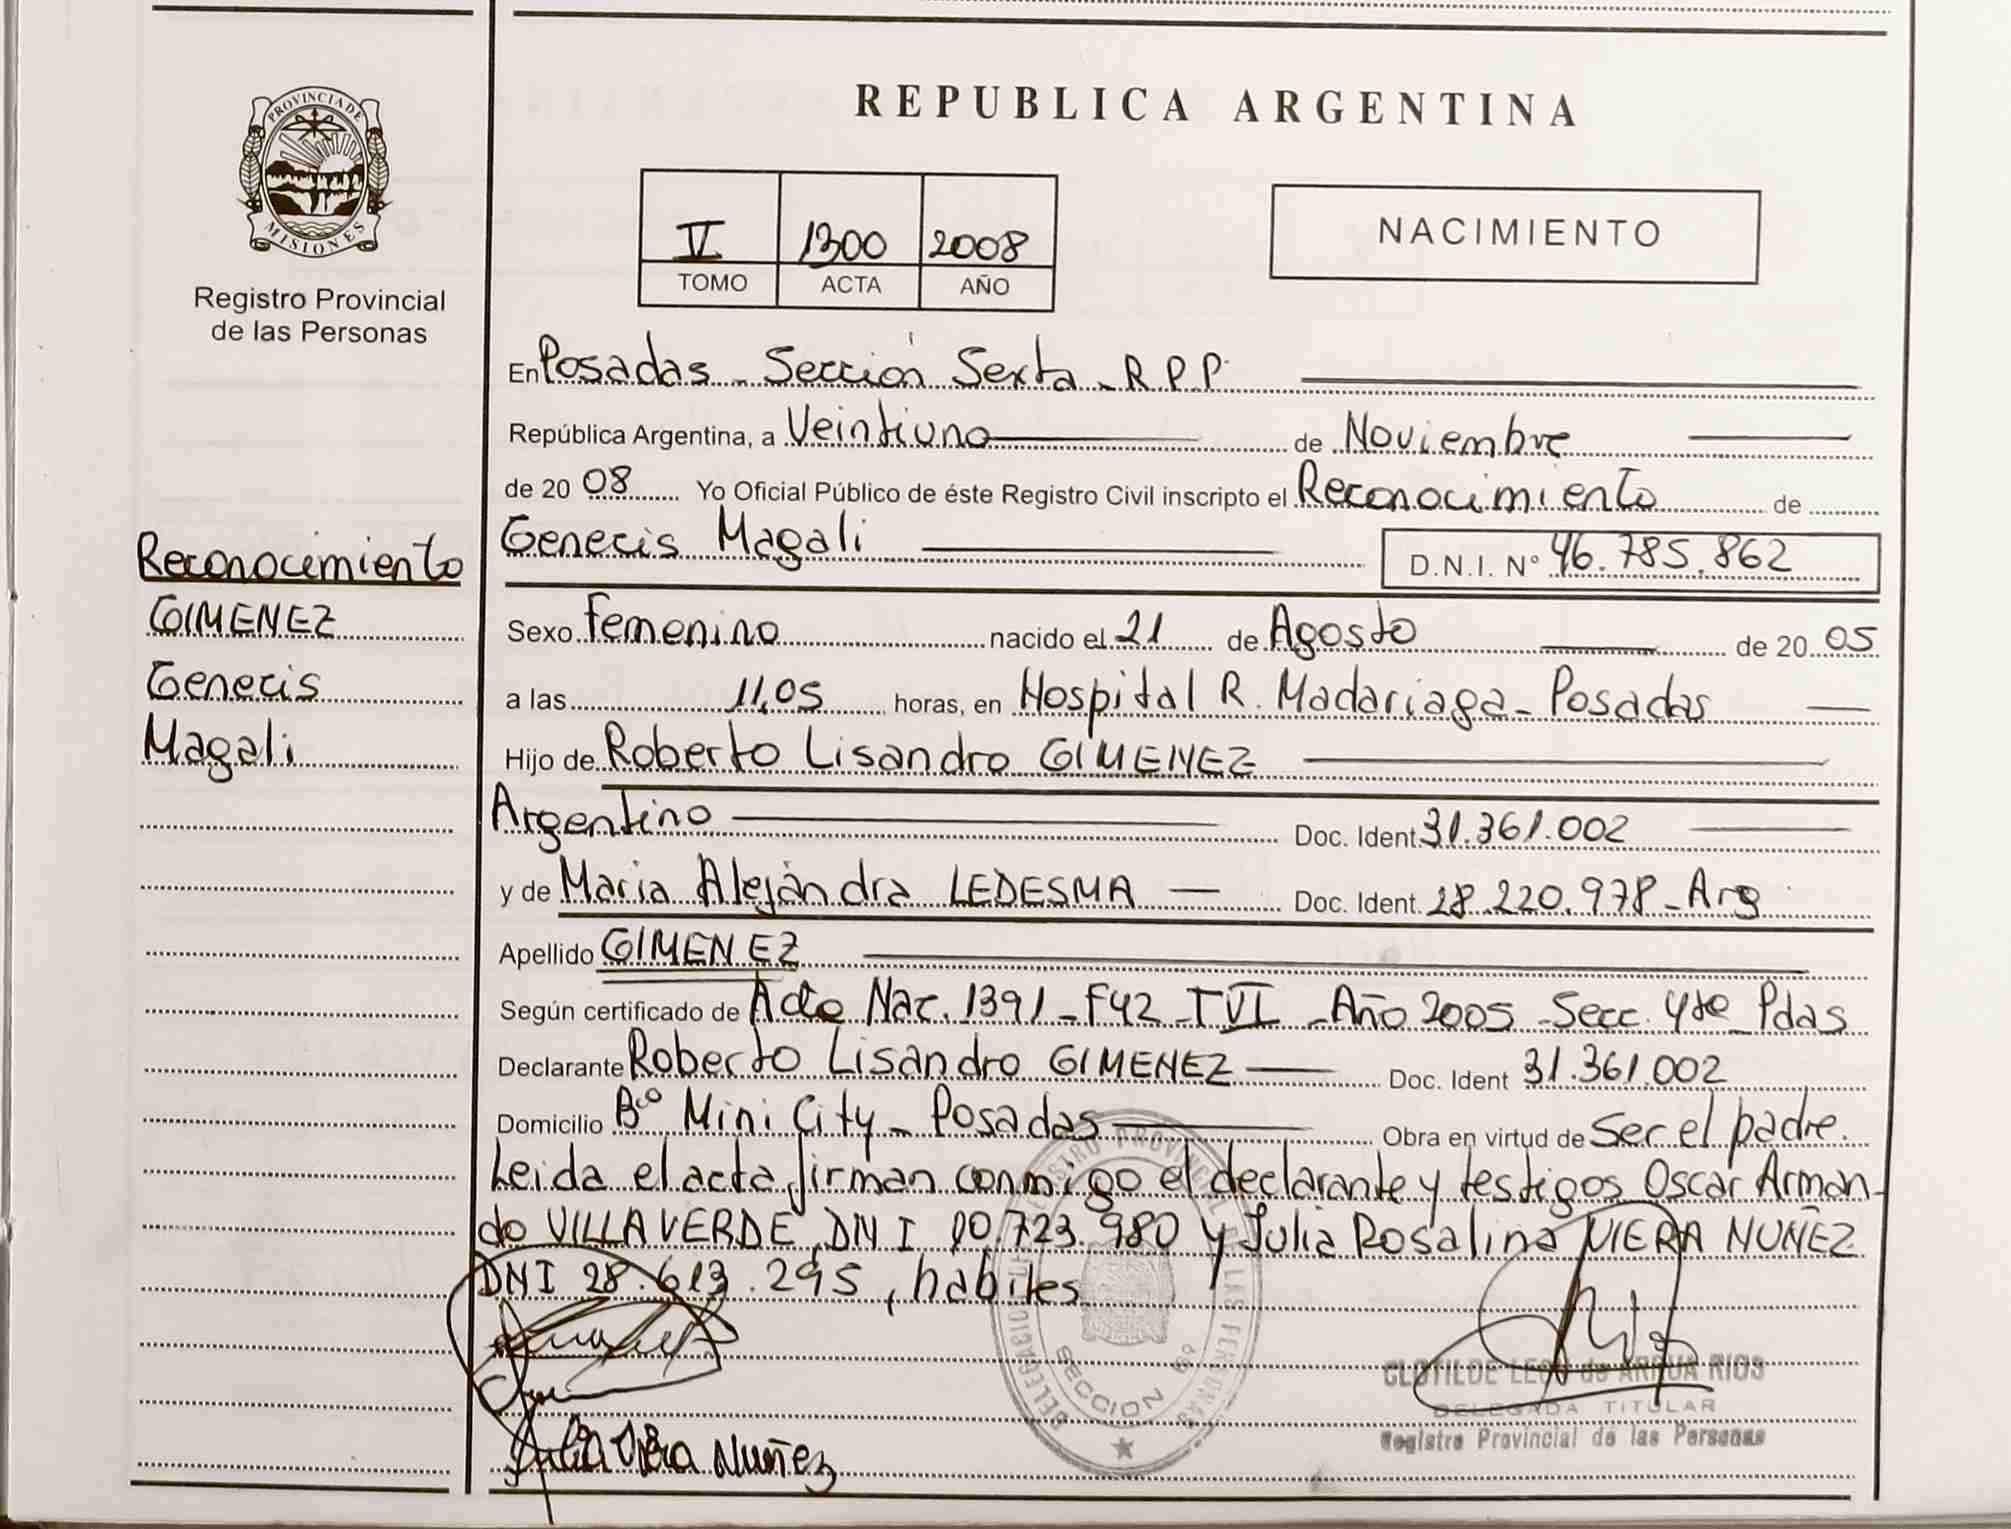 PROVINCIA DE
MISIONES
Registro Provincial
de las Personas
Reconocimiento
GIMENEZ
Genecis
Magali
REPUBLICA ARGENTINA
V 1300 2008
TOMO ACTA AÑO
NACIMIENTO
En Posadas - Sección Sexta - R.P.P.
República Argentina, a Veintiuno de Noviembre
de 20 08 Yo Oficial Público de éste Registro Civil inscripto el Reconocimiento de
Genecis Magali D.N.I. N° 46.785.862
Sexo Femenino nacido el 21 de Agosto de 20 05
a las 11,05 horas, en Hospital R. Madariaga - Posadas
Hijo de Roberto Lisandro GIMENEZ
Argentino Doc. Ident. 31.361.002
y de Maria Alejandra LEDESMA Doc. Ident. 28.220.978 - Arg
Apellido GIMENEZ
Según certificado de Acta Nac. 1391 - F42 - TVI - Año 2005 - Secc. 4ta - Pdas
Declarante Roberto Lisandro GIMENEZ Doc. Ident 31.361.002
Domicilio Bº Mini City - Posadas Obra en virtud de Ser el padre.
Leida el acta, firman conmigo el declarante y testigos Oscar Arman-
do VILLAVERDE, DNI 10.723.980 y Julia Rosalina VIERA NUÑEZ
DNI 28.613.295, habiles
Julia Viera Nuñez
SECCION 6º
CLOTILDE LEON de ARRUA RIOS
DELEGADA TITULAR
Registro Provincial de las Personas